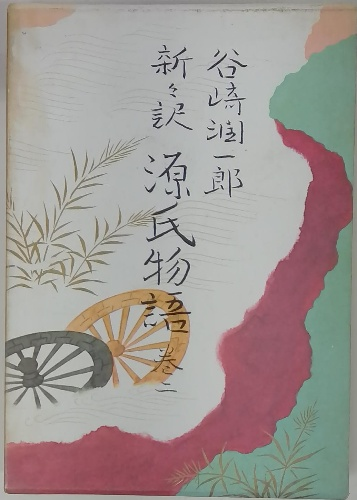 谷崎潤一郎
新々訳
源氏物語 巻二